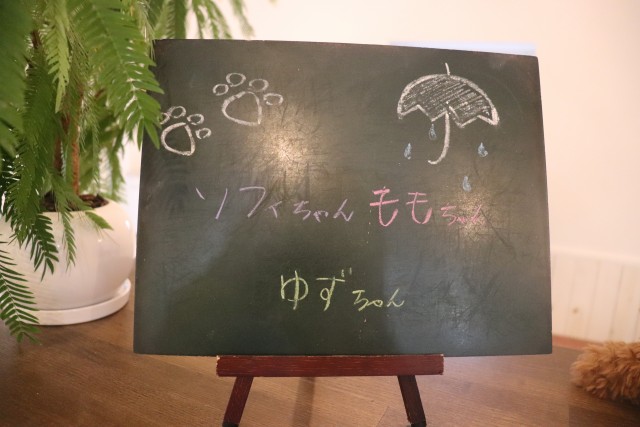 ソフィちゃん ももちゃん
ゆずちゃん